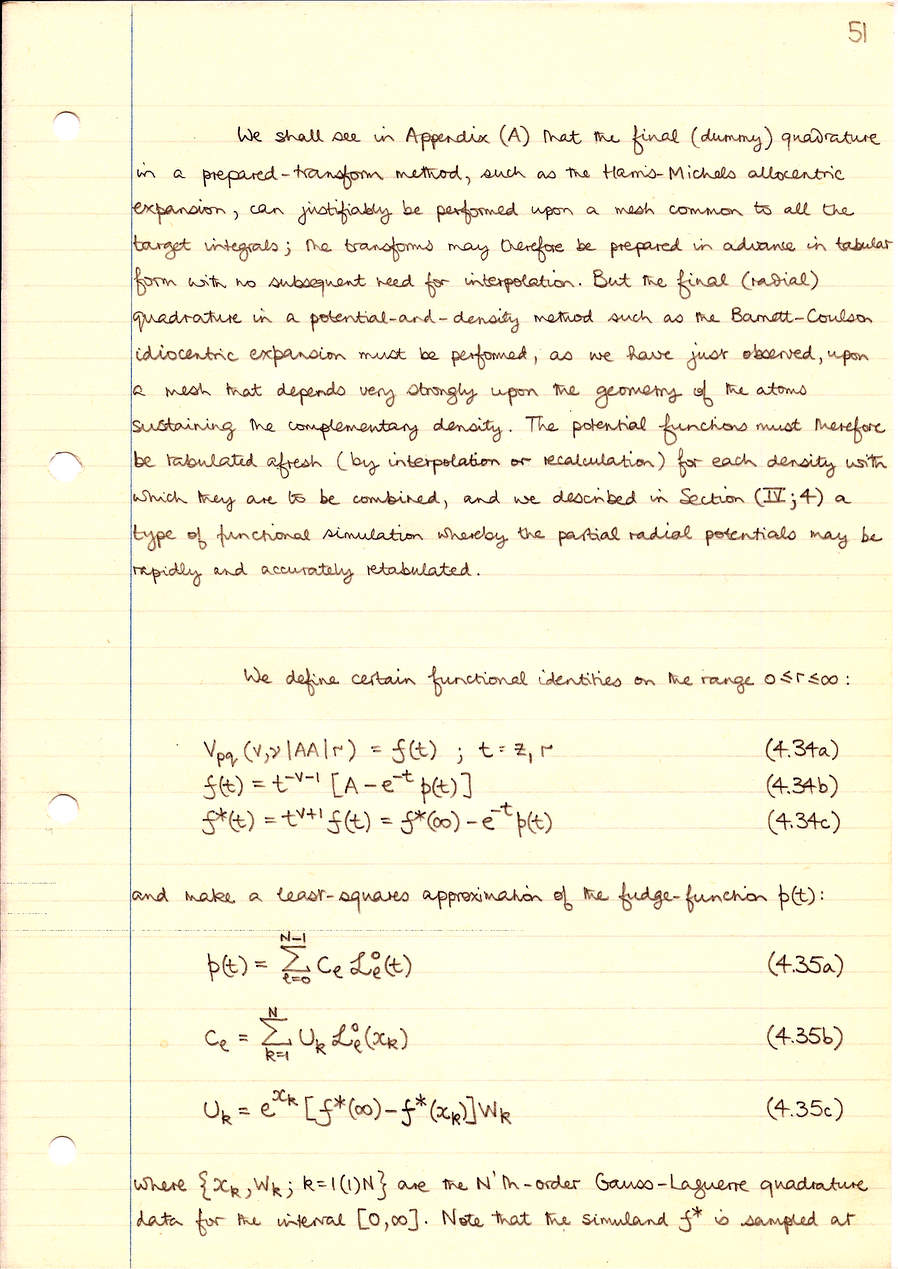 51
We shall see in Appendix (A) that the final (dummy) quadrature
in a prepared-transform method, such as the Harris-Michels allocentric
expansion, can justifiably be performed upon a mesh common to all the
target integrals; the transforms may therefore be prepared in advance in tabular
form with no subsequent need for interpolation. But the final (radial)
quadrature in a potential-and-density method such as the Barnett-Coulson
idiocentric expansion must be performed, as we have just observed, upon
a mesh that depends very strongly upon the geometry of the atoms
sustaining the complementary density. The potential functions must therefore
be tabulated afresh (by interpolation or recalculation) for each density with
which they are to be combined, and we described in Section (IV;4) a
type of functional simulation whereby the partial radial potentials may be
rapidly and accurately retabulated.
We define certain functional identities on the range 0≤r≤∞:
V_pq (v,ν|AA|r) = f(t) ; t = z, r (4.34a)
f(t) = t^-v-1 [A - e^-t p(t)] (4.34b)
f*(t) = t^v+1 f(t) = f*(∞) - e^-t p(t) (4.34c)
and make a least-squares approximation of the fudge-function p(t):
p(t) = Σ_{ℓ=0}^{N-1} C_ℓ ℒ_ℓ^0(t) (4.35a)
C_ℓ = Σ_{k=1}^{N} U_k ℒ_ℓ^0(x_k) (4.35b)
U_k = e^{x_k} [f*(∞) - f*(x_k)] W_k (4.35c)
where {x_k, W_k; k=1(1)N} are the N'th-order Gauss-Laguerre quadrature
data for the interval [0,∞]. Note that the simuland f* is sampled at